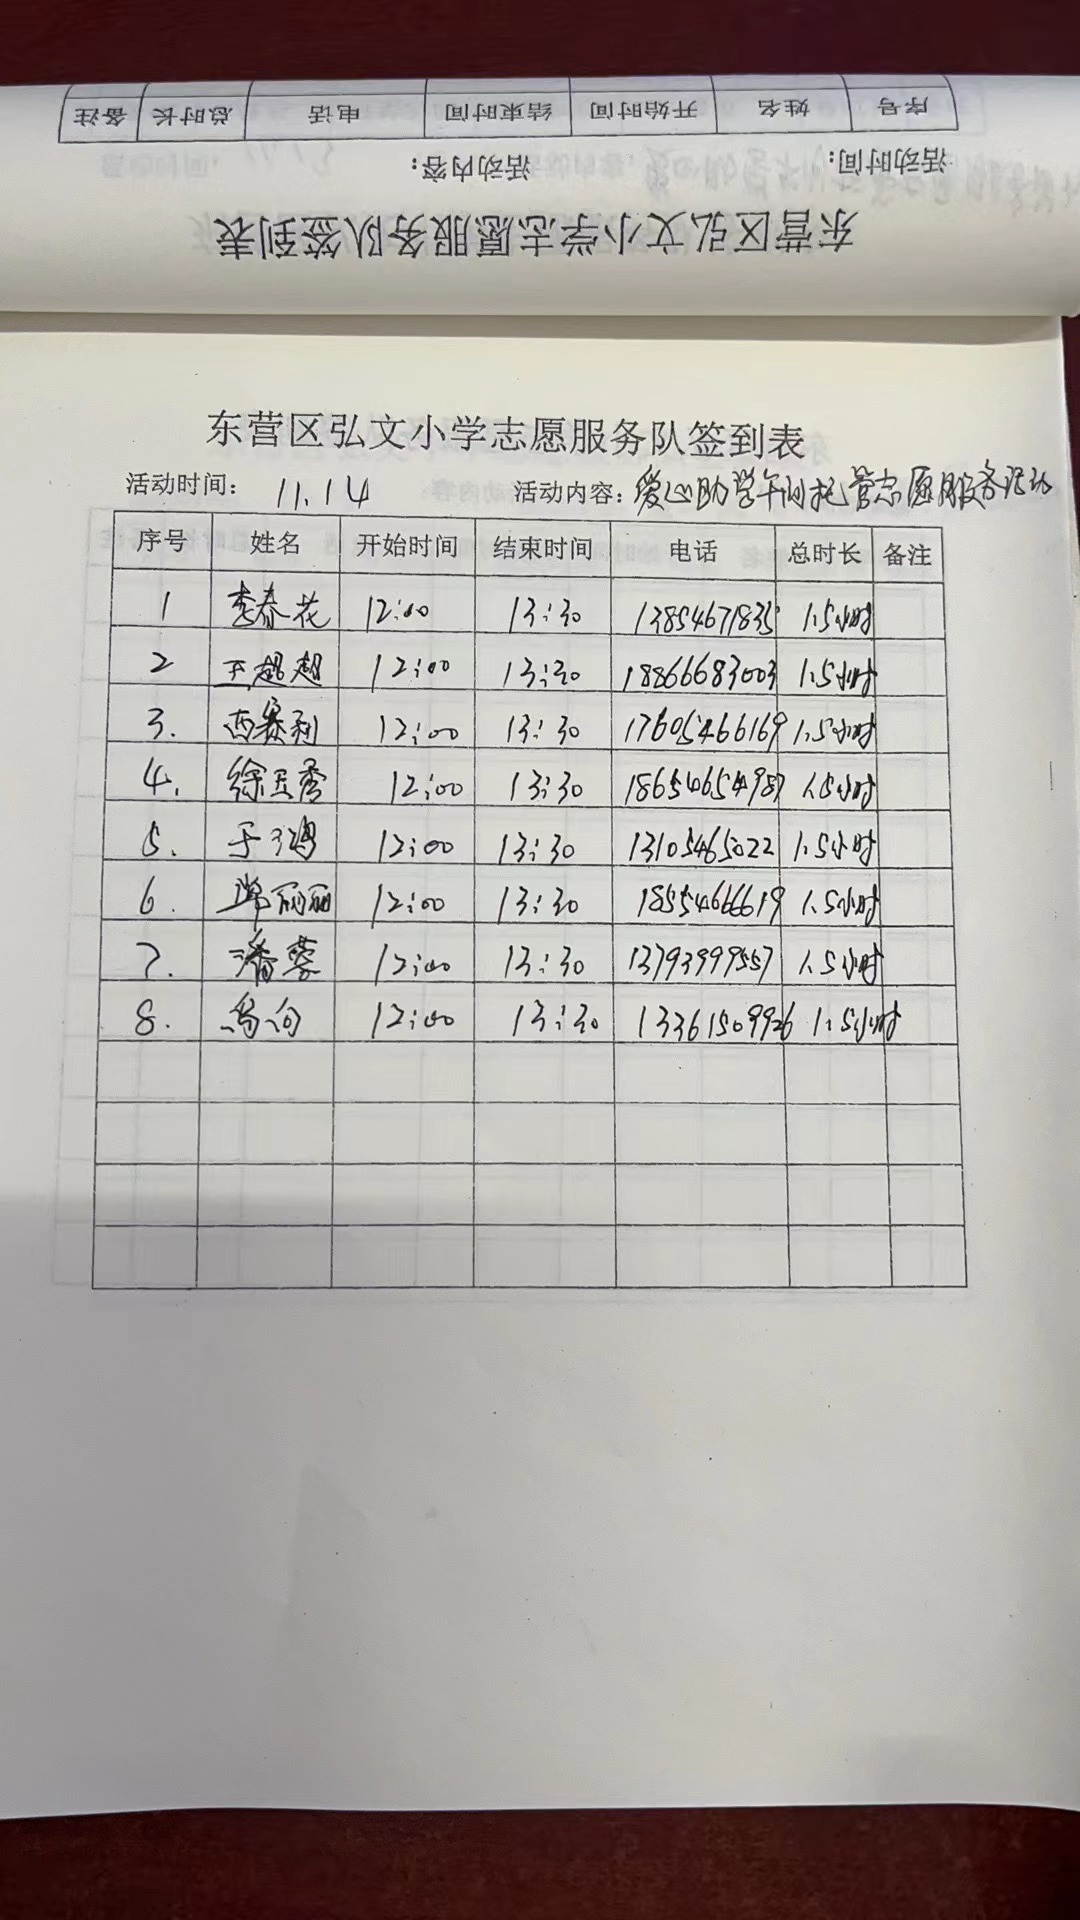 序号 姓名 开始时间 结束时间 电话 总时长 备注
活动时间: 活动内容:
东营区弘文小学志愿服务队签到表
东营区弘文小学志愿服务队签到表
活动时间: 11.14 活动内容: 爱心助学午间托管志愿服务活动
序号 姓名 开始时间 结束时间 电话 总时长 备注
1 李春花 12:00 13:30 13854671835 1.5小时
2 王超超 12:00 13:30 18866683003 1.5小时
3. 西赛利 12:00 13:30 17605466169 1.5小时
4. 徐玉秀 12:00 13:30 18654654987 1.5小时
5. 于鸿 12:00 13:30 13105465022 1.5小时
6. 丽丽 12:00 13:30 18554666619 1.5小时
7. 潘蓉 12:00 13:30 13793999557 1.5小时
8. 12:00 13:30 13361509926 1.5小时